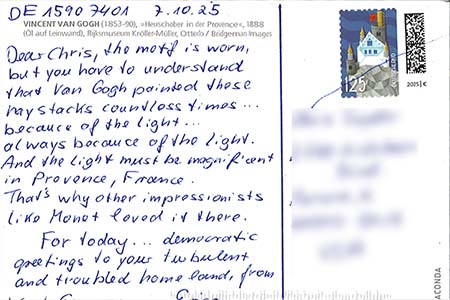 DE 1590 7401 7.10.25
VINCENT VAN GOGH (1853–90), »Heuschober in der Provence«, 1888
(Öl auf Leinwand), Rijksmuseum Kröller-Müller, Otterlo / Bridgeman Images
Dear Chris, the motif is worn,
but you have to understand
that Van Gogh painted these
haystacks countless times...
because of the light...
always because of the light.
And the light must be magnificent
in Provence, France.
That's why other impressionists
like Monet loved it there.
For today... democratic
greetings to your turbulent
and troubled homeland, from
125
2025 | €
ACONDA